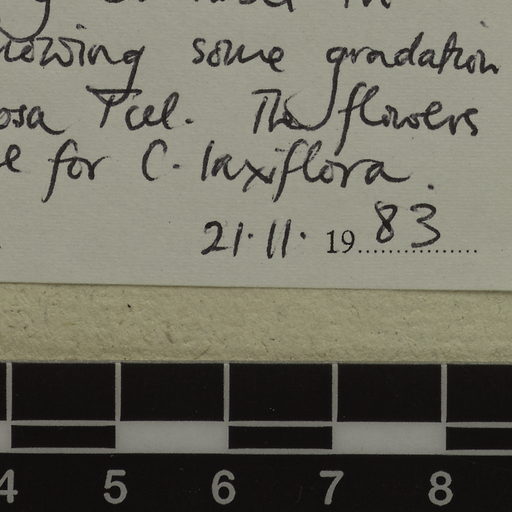 showing some gradation
Tul. The flowers
for C. laxiflora.
21.11. 1983
4 5 6 7 8